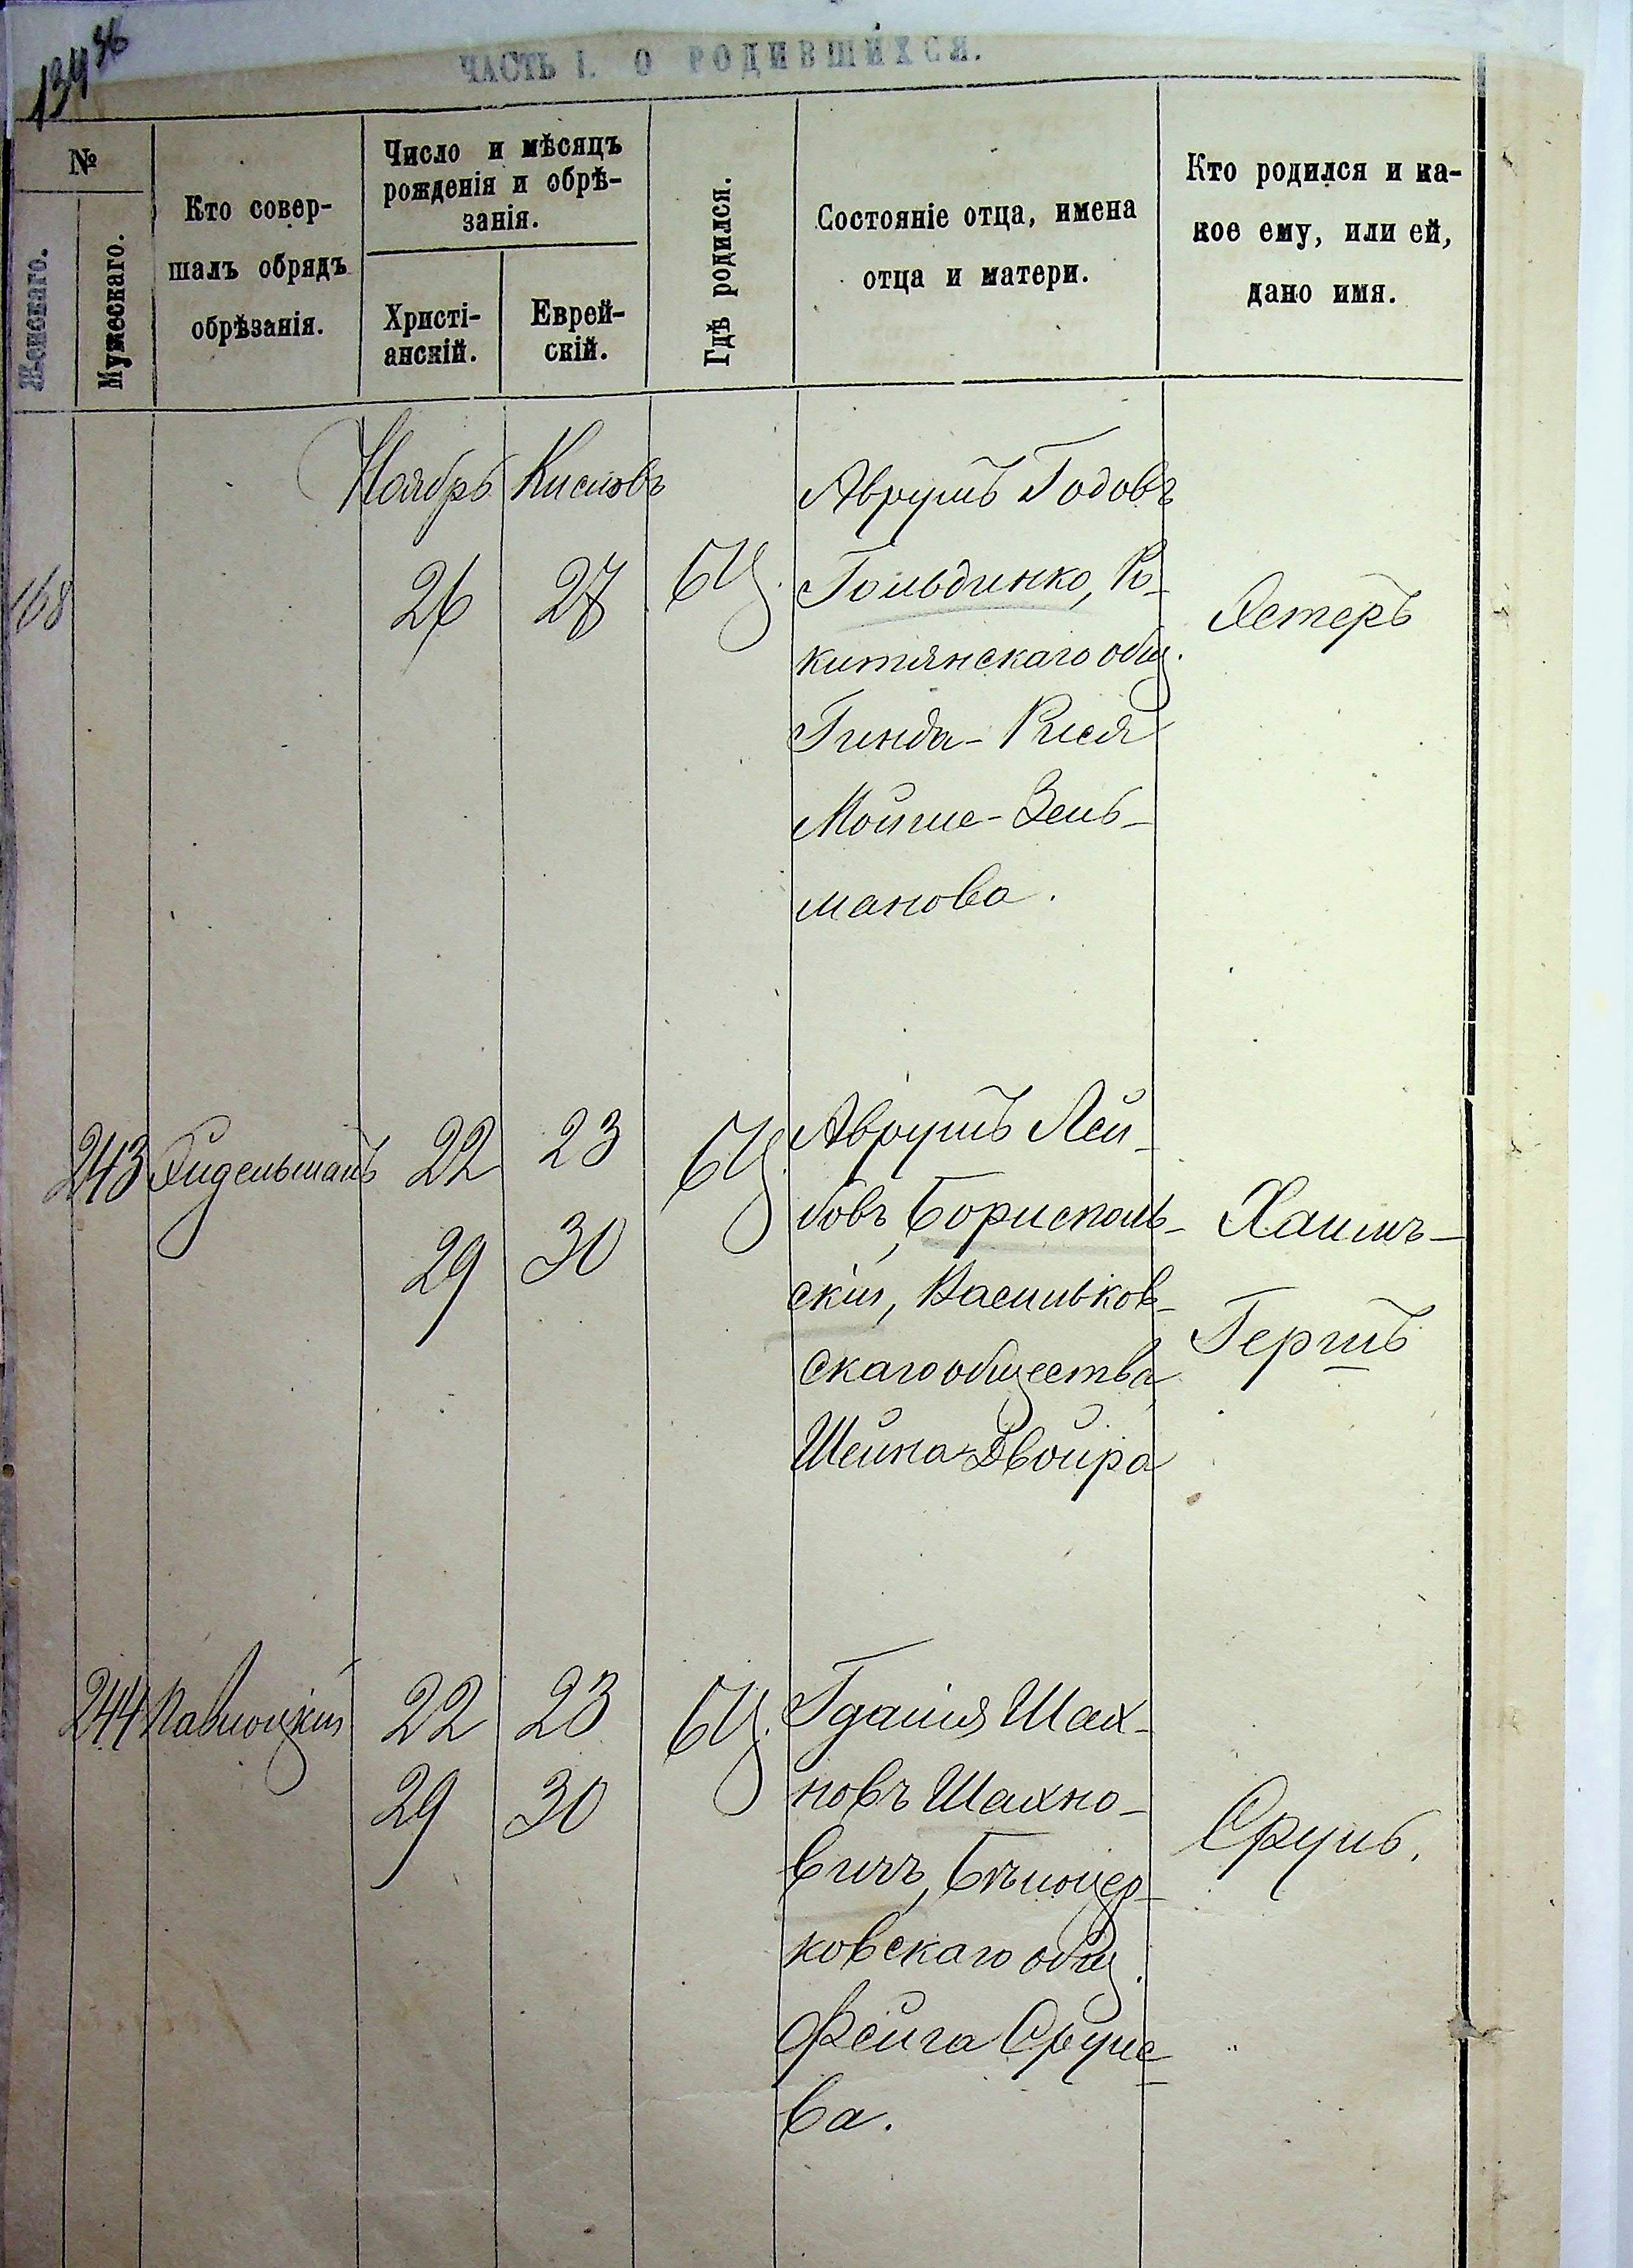 134 36
ЧАСТЬ I. О РОДИВШИХСЯ.
№
Женскаго.
Мужескаго.
Кто совер-
шалъ обрядъ
обрѣзанія.
Число и мѣсяцъ
рожденія и обрѣ-
занія.
Христі-
анскій.
Еврей-
скій.
Гдѣ родился.
Состояніе отца, имена
отца и матери.
Кто родился и ка-
кое ему, или ей,
дано имя.
Ноябрь Кислевъ
168
26 27 БЦ.
Аврумъ Годовъ
Гольдинко, Ро-
китянскаго общ.
Гинда-Рися
Мойше-Зель-
манова.
Эстеръ
243 Эйдельманъ 22 23 БЦ.
29 30
Аврумъ Лей-
бовъ, Бориспель-
скій, Васильков-
скаго общества
Шейна-Двойра
Хаимъ-
Гершъ
244 Паволоцкій 22 23 БЦ.
29 30
Гдалія Шах-
новъ Шахно-
вичъ, Бѣлоцер-
ковскаго общ.
Фейга Сруле-
ва.
Сруль.